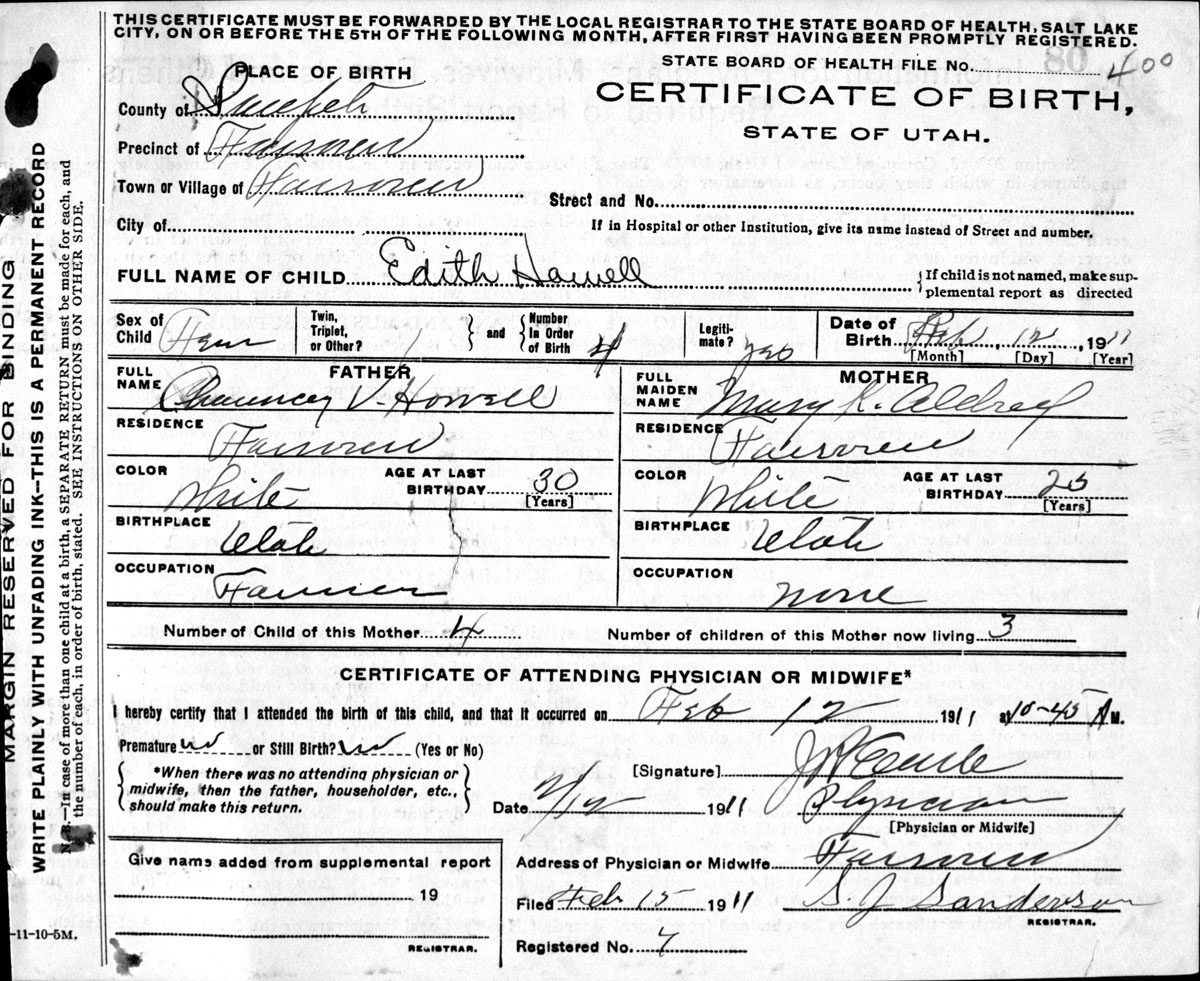 THIS CERTIFICATE MUST BE FORWARDED BY THE LOCAL REGISTRAR TO THE STATE BOARD OF HEALTH, SALT LAKE
CITY, ON OR BEFORE THE 5TH OF THE FOLLOWING MONTH, AFTER FIRST HAVING BEEN PROMPTLY REGISTERED.
STATE BOARD OF HEALTH FILE No. 80 400
PLACE OF BIRTH
CERTIFICATE OF BIRTH,
STATE OF UTAH.
County of Sanpete
Precinct of Fairview
Town or Village of Fairview
Street and No.
City of
If in Hospital or other Institution, give its name instead of Street and number.
FULL NAME OF CHILD Edith Howell
{If child is not named, make sup-
plemental report as directed
Sex of Child Fem
Twin, Triplet, or Other?
and
Number In Order of Birth 4
Legiti-mate? yes
Date of Birth Feb 12, 1911
[Month] [Day] [Year]
FATHER
FULL NAME Chauncey V. Howell
RESIDENCE Fairview
COLOR White
AGE AT LAST BIRTHDAY 30
[Years]
BIRTHPLACE Utah
OCCUPATION Farmer
MOTHER
FULL MAIDEN NAME Mary K. Aldred
RESIDENCE Fairview
COLOR White
AGE AT LAST BIRTHDAY
[Years]
BIRTHPLACE Utah
OCCUPATION None
Number of Child of this Mother 4
Number of children of this Mother now living 3
CERTIFICATE OF ATTENDING PHYSICIAN OR MIDWIFE*
I hereby certify that I attended the birth of this child, and that it occurred on Feb 12 1911 at 10-45 A M.
Premature no or Still Birth? no (Yes or No)
*When there was no attending physician or
midwife, then the father, householder, etc.,
should make this return.
[Signature]
Date 2/12 1911 Physician
[Physician or Midwife]
Give name added from supplemental report
19
REGISTRAR.
Address of Physician or Midwife Fairview
Filed Feb 15 1911 S J Sanderson
REGISTRAR.
Registered No. 7
MARGIN RESERVED FOR BINDING
WRITE PLAINLY WITH UNFADING INK--THIS IS A PERMANENT RECORD
N. B.--In case of more than one child at a birth, a SEPARATE RETURN must be made for each, and
the number of each, in order of birth, stated. SEE INSTRUCTIONS ON OTHER SIDE.
-11-10-5M.